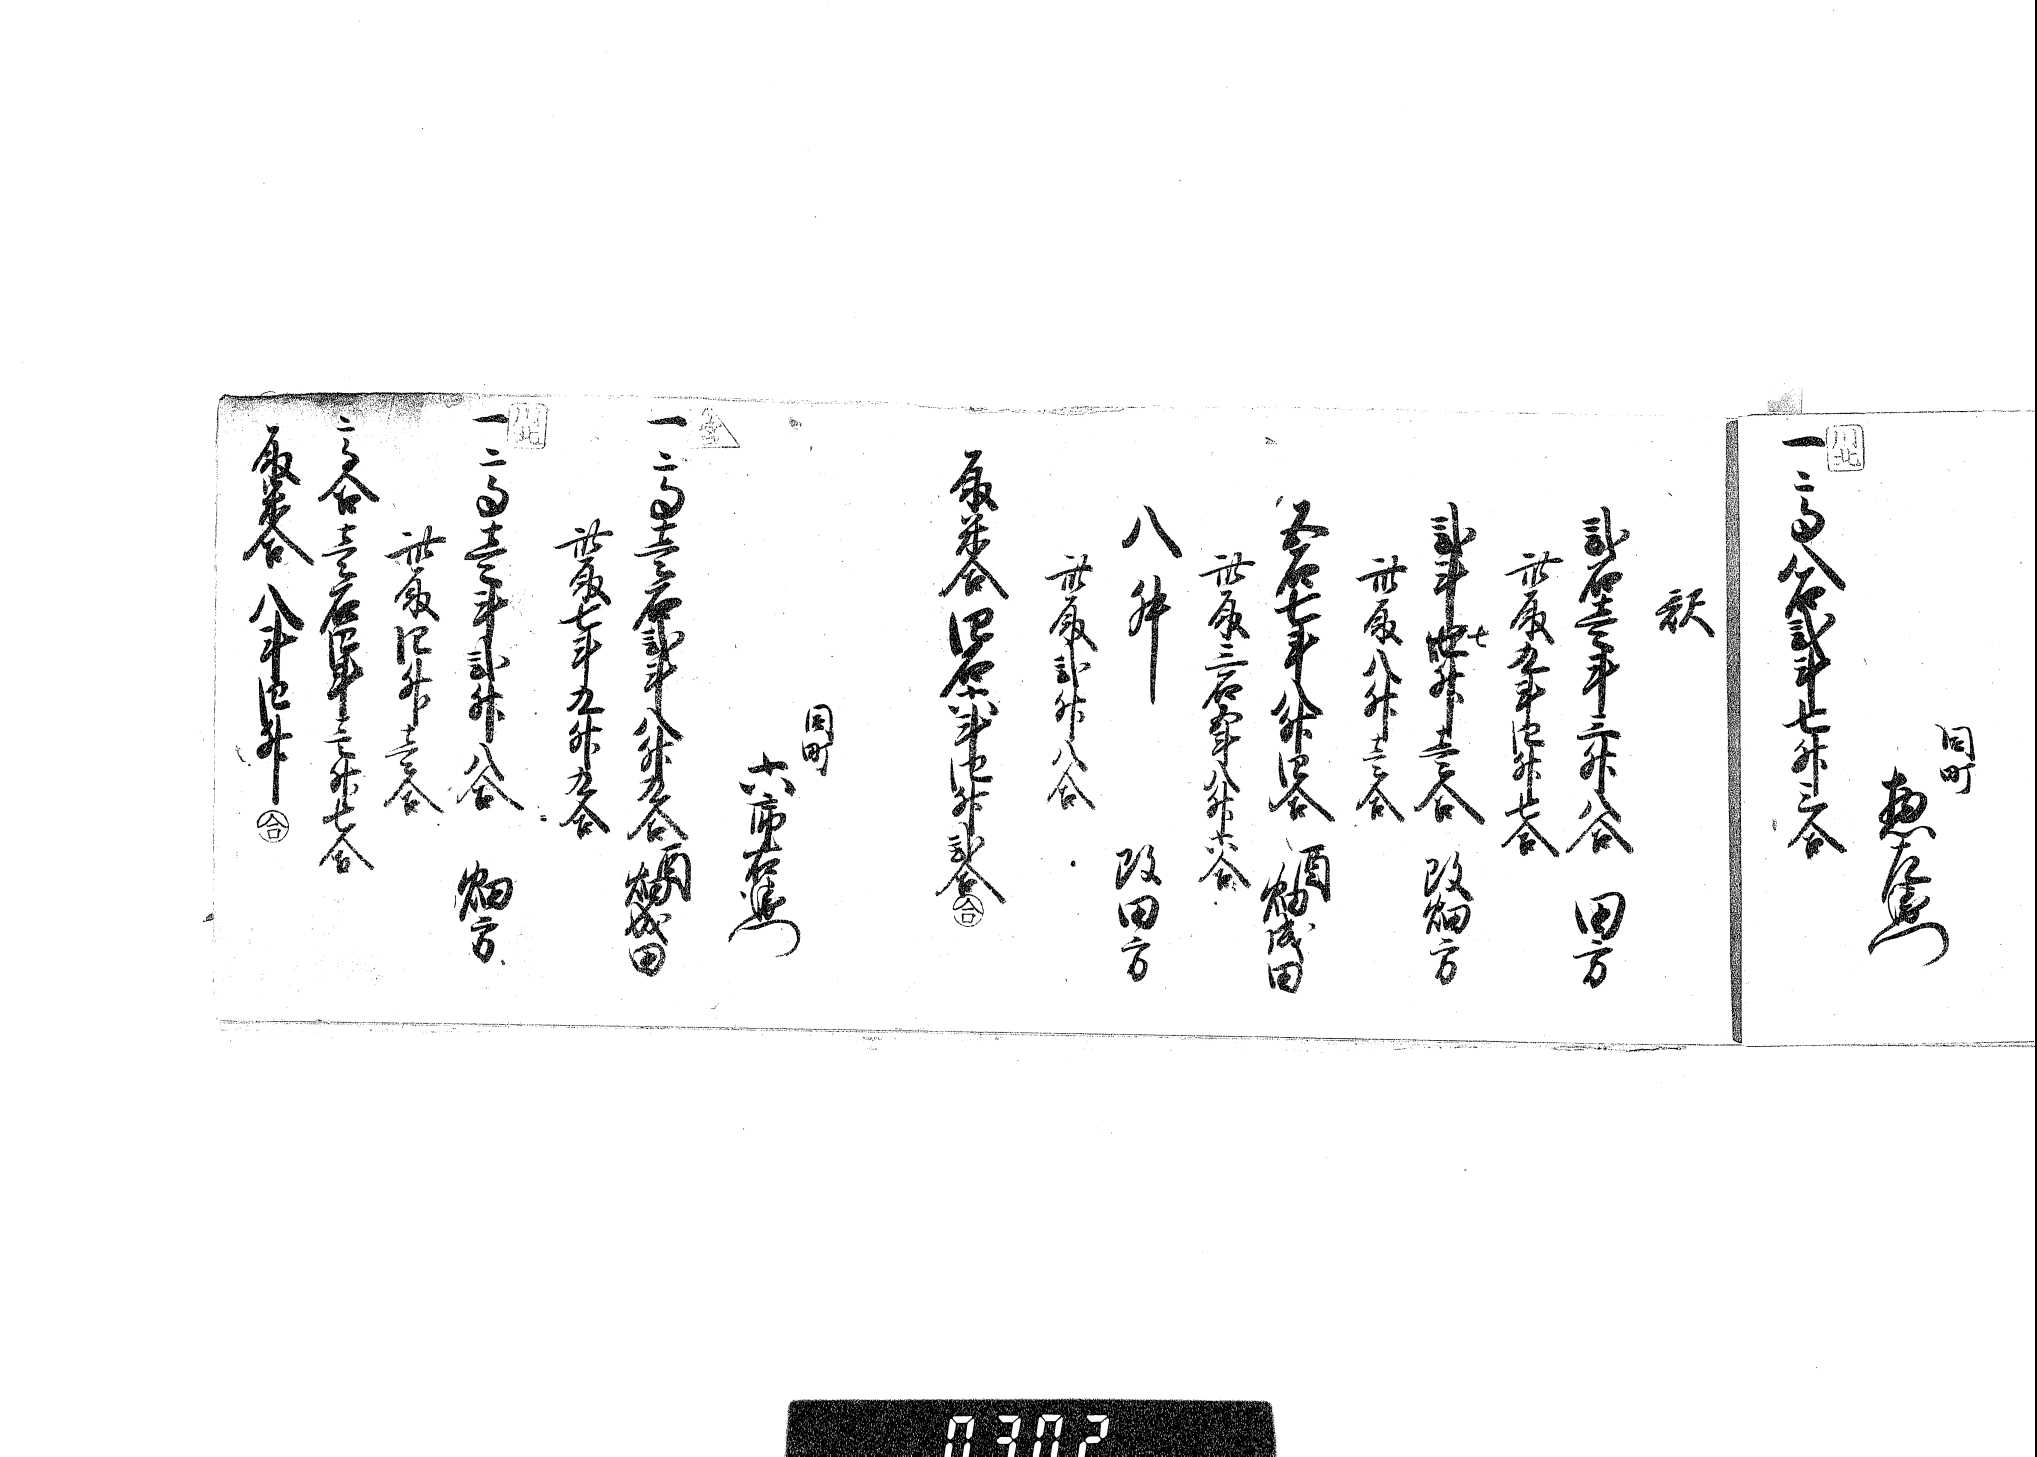 同町
惣左衛門
川北
一二高八石弐斗七升三合
訳
弐石壱斗三升八合 田方
此取九斗四升七合
弐斗四七升壱合 改畑方
此取八升壱合
五石七斗八升四合 酉畑成田
此取三石五斗八升六合
八升 改田方
此取弐升八合
取米合四石六斗四升弐合 合
同町
六市右衛門
一二高壱石弐斗八升九合 酉畑成田
此取七斗九升九合
川北
一二高壱斗弐升八合 畑方
此取四升壱合
二高合壱石四斗壱升七合
取米合八斗四升 合
0302